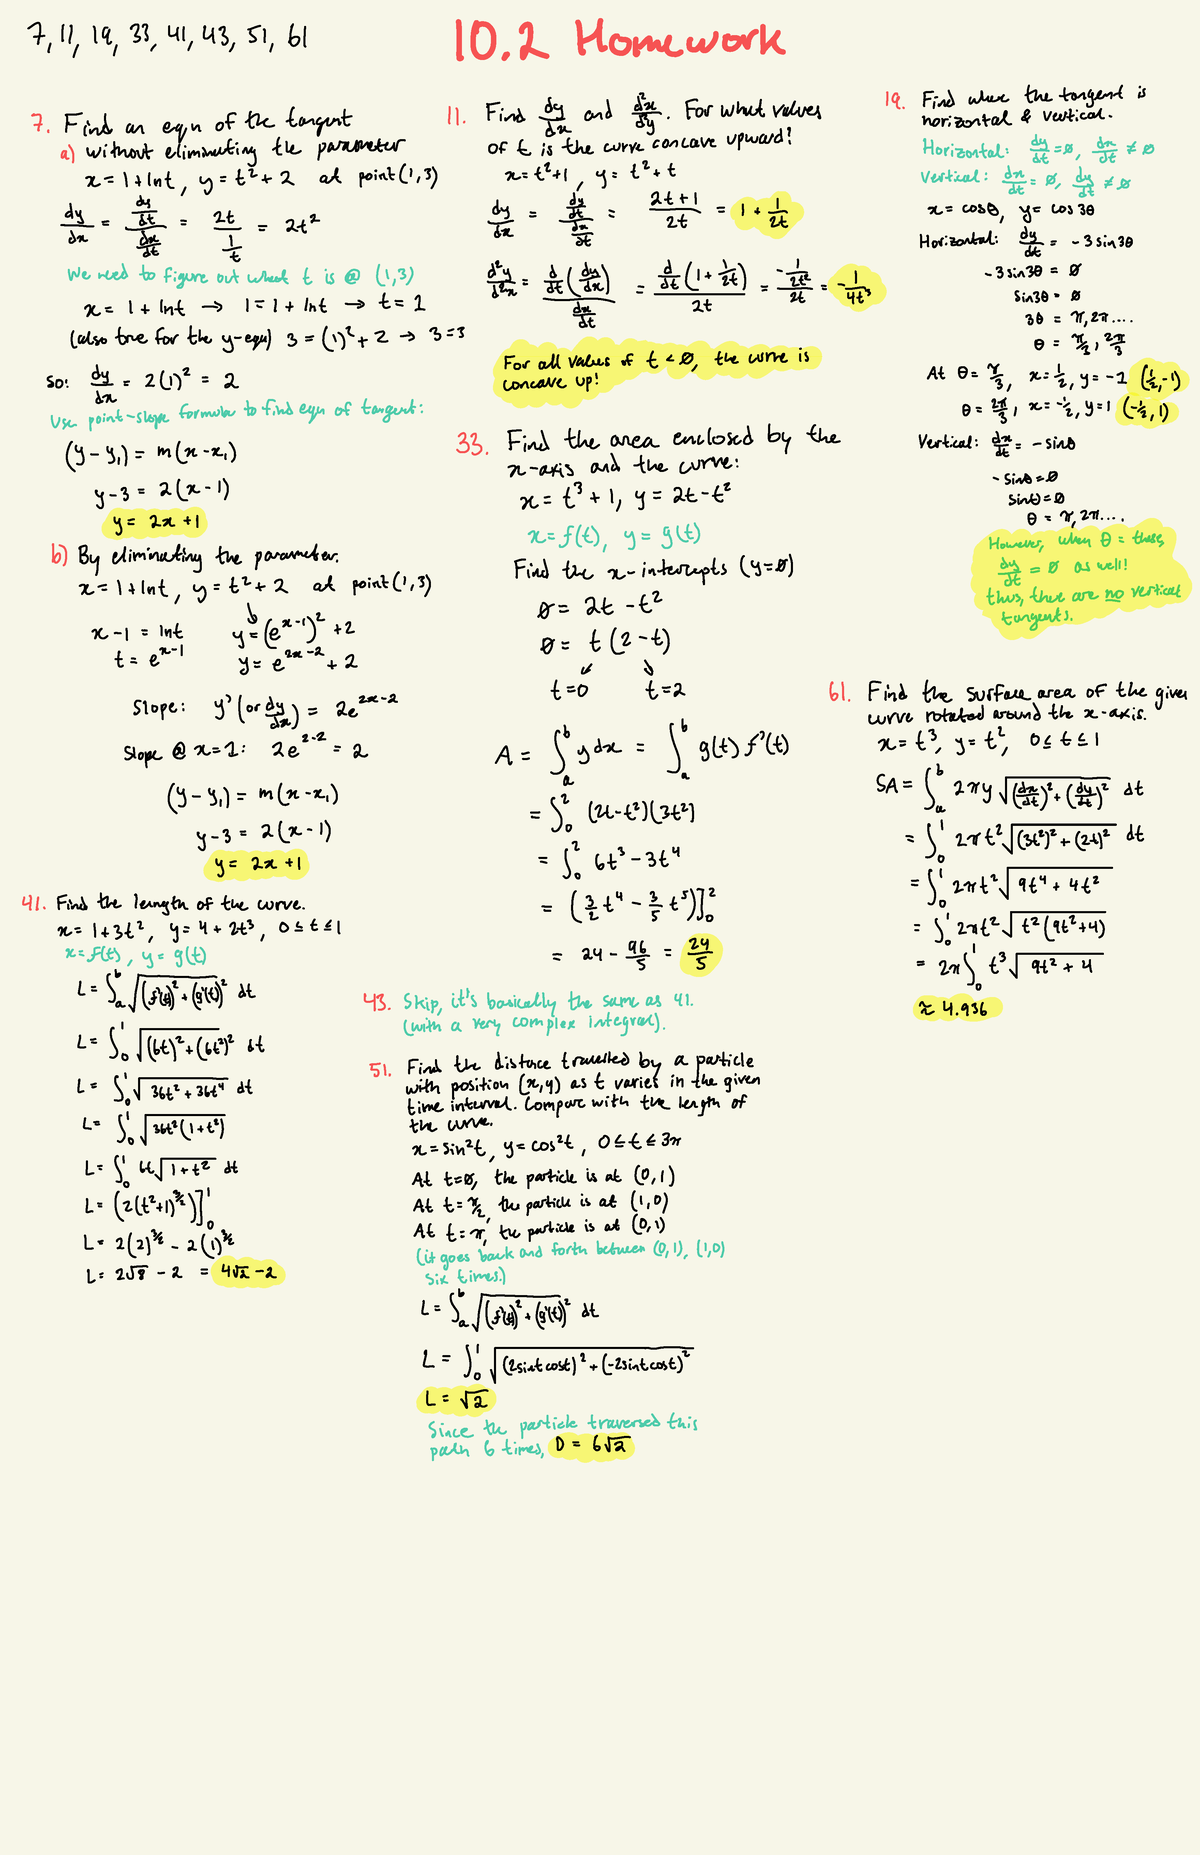 7, 11, 19, 33, 41, 43, 51, 61
10.2 Homework
7. Find an eqn of the tangent
a) without eliminating the parameter
x = 1 + lnt, y = t² + 2 at point (1,3)
dy/dx = (dy/dt)/(dx/dt) = 2t/(1/t) = 2t²
We need to figure out what t is @ (1,3)
x = 1 + lnt → 1 = 1 + lnt → t = 1
(also true for the y-eqn) 3 = (1)² + 2 → 3=3
so: dy/dx = 2(1)² = 2
Use point-slope formula to find eqn of tangent:
(y - y₁) = m(x - x₁)
y - 3 = 2(x - 1)
y = 2x + 1
b) By eliminating the parameter.
x = 1 + lnt, y = t² + 2 at point (1,3)
x - 1 = lnt
t = e^(x-1)
y = (e^(x-1))² + 2
y = e^(2x-2) + 2
Slope: y' (or dy/dx) = 2e^(2x-2)
Slope @ x=1: 2e^(2-2) = 2
(y - y₁) = m(x - x₁)
y - 3 = 2(x - 1)
y = 2x + 1
41. Find the length of the curve.
x = 1 + 3t², y = 4 + 2t³, 0 ≤ t ≤ 1
x = f(t), y = g(t)
L = ∫ₐᵇ √((f'(t))² + (g'(t))²) dt
L = ∫₀¹ √((6t)² + (6t²)²) dt
L = ∫₀¹ √(36t² + 36t⁴) dt
L = ∫₀¹ √(36t²(1+t²))
L = ∫₀¹ 6t √(1+t²) dt
L = (2(t²+1)^(3/2))]₀¹
L = 2(2)^(3/2) - 2(1)^(3/2)
L = 2√8 - 2 = 4√2 - 2
11. Find dy/dx and d²x/d²y. For what values
of t is the curve concave upward?
x = t² + 1, y = t² + t
dy/dx = (dy/dt)/(dx/dt) = (2t + 1)/2t = 1 + 1/2t
d²y/d²x = (d/dt (dy/dx))/(dx/dt) = (d/dt (1 + 1/2t))/2t = (-1/2t²)/2t = -1/4t³
For all values of t < 0, the curve is
concave up!
33. Find the area enclosed by the
x-axis and the curve:
x = t³ + 1, y = 2t - t²
x = f(t), y = g(t)
Find the x-intercepts (y=0)
0 = 2t - t²
0 = t (2 - t)
t=0 t=2
A = ∫ₐᵇ y dx = ∫ₐᵇ g(t) f'(t)
= ∫₀² (2t - t²)(3t²)
= ∫₀² 6t³ - 3t⁴
= (3/2 t⁴ - 3/5 t⁵)]₀²
= 24 - 96/5 = 24/5
43. Skip, it's basically the same as 41.
(with a very complex integral).
51. Find the distance travelled by a particle
with position (x,y) as t varies in the given
time interval. Compare with the length of
the curve.
x = sin²t, y = cos²t, 0 ≤ t ≤ 3π
At t=0, the particle is at (0,1)
At t = π/2, the particle is at (1,0)
At t = π, the particle is at (0,1)
(it goes back and forth between (0,1), (1,0)
six times.)
L = ∫ₐᵇ √((f'(t))² + (g'(t))²) dt
L = ∫₀¹ √((2sint cost)² + (-2sint cost)²)
L = √2
Since the particle traversed this
path 6 times, D = 6√2
19. Find where the tangent is
horizontal & vertical.
Horizontal: dy/dt = 0, dx/dt ≠ 0
Vertical: dx/dt = 0, dy/dt ≠ 0
x = cosθ, y = cos 3θ
Horizontal: dy/dt = -3 sin 3θ
-3 sin 3θ = 0
sin 3θ = 0
3θ = π, 2π....
θ = π/3, 2π/3
At θ = π/3, x = 1/2, y = -1 (1/2, -1)
θ = 2π/3, x = -1/2, y = 1 (-1/2, 1)
Vertical: dx/dt = -sinθ
-sinθ = 0
sinθ = 0
θ = π, 2π....
However, when θ = these,
dy/dt = 0 as well!
thus, there are no vertical
tangents.
61. Find the surface area of the given
curve rotated around the x-axis.
x = t³, y = t², 0 ≤ t ≤ 1
SA = ∫ₐᵇ 2πy √((dx/dt)² + (dy/dt)²) dt
= ∫₀¹ 2πt² √((3t²)² + (2t)²) dt
= ∫₀¹ 2πt² √(9t⁴ + 4t²)
= ∫₀¹ 2πt² √(t²(9t²+4))
= 2π ∫₀¹ t³ √(9t² + 4)
≈ 4.936